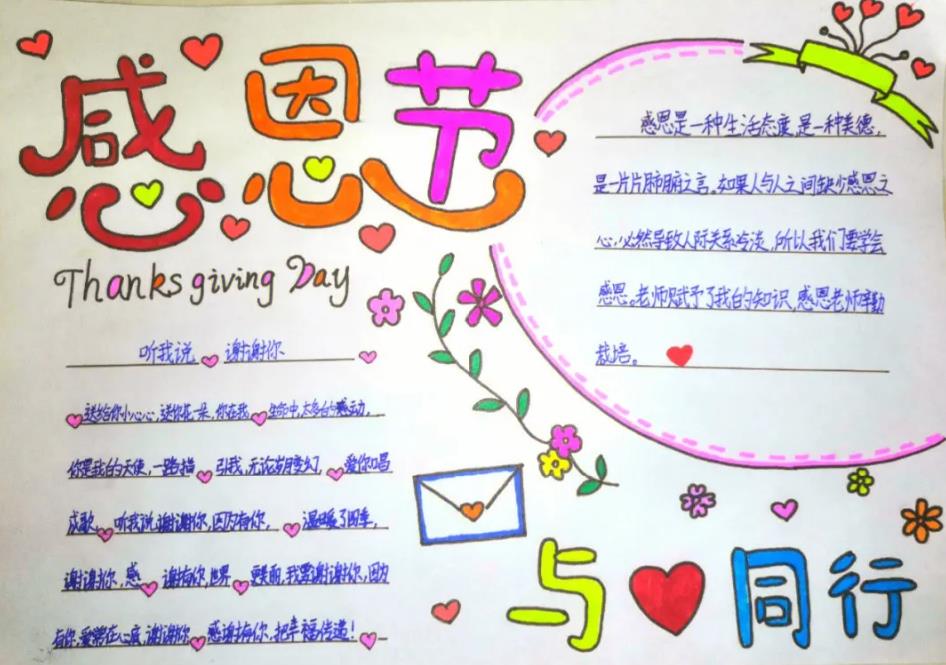 感恩节
Thanksgiving Day
听我说 谢谢你
送给你小心心,送你花一朵,你在我生命中,太多的感动,
你是我的天使,一路指引我,无论岁月变幻,爱你唱
成歌,听我说谢谢你,因为有你,温暖了四季,
谢谢你,感谢有你,世界更美丽,我要谢谢你,因为
有你,爱常在心底,谢谢你感谢有你,把幸福传递!
感恩是一种生活态度,是一种美德,
是一片片肺腑之言。如果人与人之间缺少感恩之
心,必然导致人际关系冷淡,所以我们要学会
感恩。老师赋予了我的知识,感恩老师辛勤
栽培。
与 同行